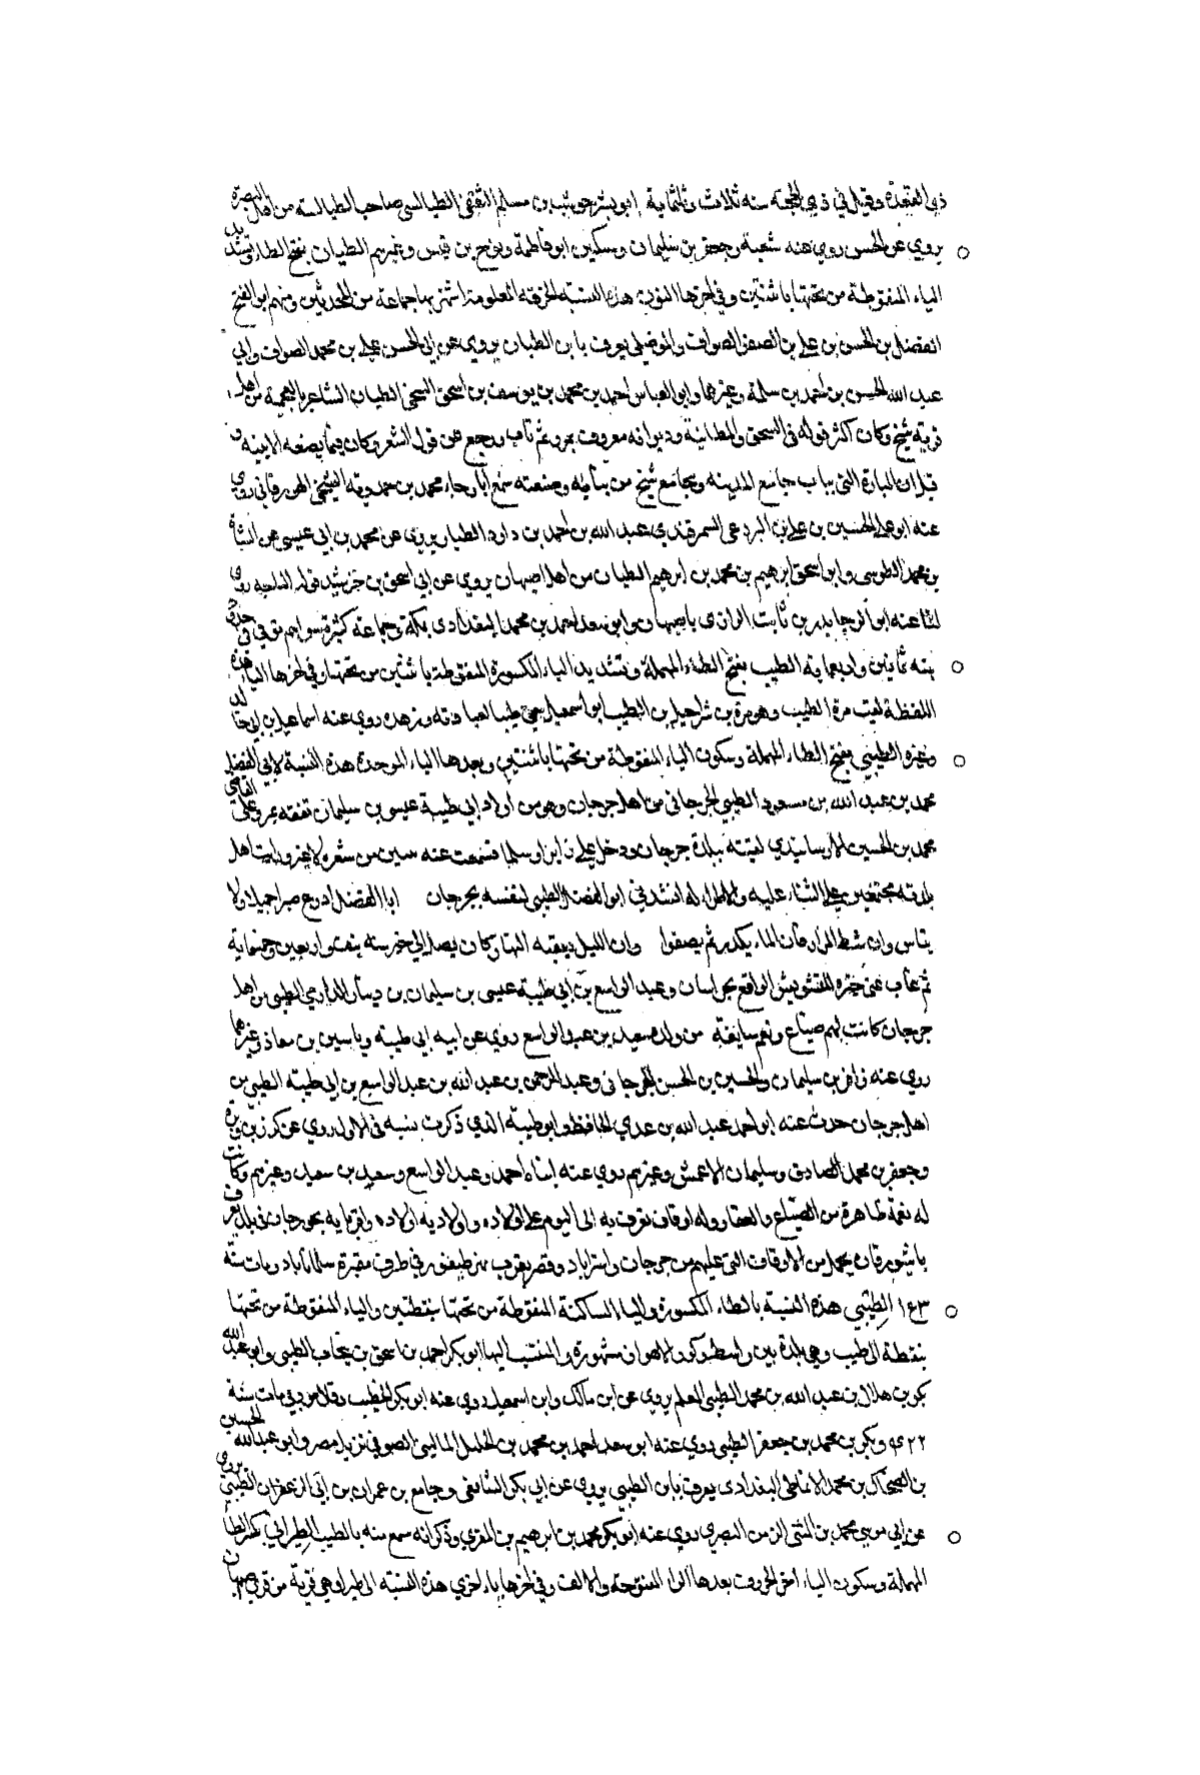 ذي القعدة وقيل في ذي الحجة سنه ثلاث وثلثماية ابو بشر حوشب بن مسلم الثقفي الطيالسي صاحب الطيالسه من اهل البصرة
يروي عن الحسن روي عنه شعبة وجعفر بن سليمان ومسكين ابو فاطمة ونوح بن قيس وغيرهم الطيان بفتح الطاء وتشديد
الياء المنقوطة من تحتها باثنتين وفي اخرها النون هذه النسبة الحرفة المعلومة اشتهر بها جماعة من المحدثين ومنهم ابو الفتح
الفضل بن الحسن بن علي بن الصواف الموصلي يعرف بابن الطيان يروي عن ابي الحسن علي بن محمد الصواف وابي
عبد الله الحسين بن احمد بن سلمة وغيرهما وابو العباس احمد بن محمد بن يوسف بن اسحق السحي الطيان الشاعر بالعجمية من اهل
قرية شيخ وكان اكثر قوله في السحق والمطانية وديوانه معروف بمرو ثم تاب ورجع عن قول الشعر وكان فيما يصنعه الابنيه و
قيل ان المنارة التي بباب جامع المدينه وبجامع شيخ من بنائه وصنعته سمع ابا رجاء محمد بن حمدويه السيخي الهورقاني روي
عنه ابو علي الحسين بن علي بن البردعي السمرقندي عبد الله بن احمد بن داود الطيان يروي عن محمد بن ابي عيسى عن
بن محمد الطوسي وابو اسحق ابرهيم بن محمد بن ابرهيم الطيان من اهل اصبهان يروي عن ابي اسحق بن خرشيد قوله روي
لنا عنه ابو الرجا بدر بن ثابت الراراني باصبهان وابو سعد احمد بن محمد البغدادي بمكة وجماعة كثيرة سواهم توفي في حدود
سنه ثمانين واربعمايه الطيب بفتح الطاء المهملة وتشديد الياء المكسورة المنقوطة باثنتين من تحتها وفي اخرها الباء هذه
اللفظة لقب مرة الطيب وهو مرة بن شراحيل بن الطيب ابو اسمعيل سمي طيبا لعبادته وزهده روي عنه اسماعيل بن ابي خالد
وغيره الطيبي بفتح الطاء المهملة وسكون الياء المنقوطة من تحتها باثنتين وبعدها الباء الموحدة هذه النسبة لابي الفضل
محمد بن عبد الله بن مسعود الطيبي الجرجاني من اهل جرجان وهو من اولاد ابي طيبة عيسى بن سليمان تفقه بمرو على القاضي
محمد بن الحسين الارسابندي لقيته ببلدة جرجان ودخل علي زايرا وسلما فسمعت عنه سيين من شعره لا غير ورايت اهل
بلدته مجتمعين على الثناء عليه والاطراء له انشدني ابو الفضل الطيبي لنفسه بجرجان ابا الفضل ادرع صبرا جميلا ولا
يتاس وان شط المزار فان الماء يكدر ثم يصفوا وان الليل يعقبه النهار وكان يصل الي خبره سنه نيف واربعين وخمسماية
ثم غاب عني خبره للتشويش الواقع بخراسان وعبد الواسع بن ابي طيبة عيسى بن سليمان بن دينار الدارمي الطيبي من اهل
جرجان كانت لهم ضياع ونعم سابغة من ولده سعيد بن عبد الواسع روي عن ابيه ابي طيبة وياسين بن معاذ وغيرهما
روي عنه زافر بن سليمان والحسين بن الحسن الجرجاني وعبد الرحمن بن عبد الله بن عبد الواسع بن ابي طيبة الطيبي من
اهل جرجان حدث عنه ابو احمد عبد الله بن عدي الحافظ وابو طيبة الذي ذكرت نسبه في الاول روي عن كرز بن وبرة
وجعفر بن محمد الصادق وسليمان الاعمش وغيرهم روي عنه ابناه احمد وعبد الواسع وسعد بن سعيد وغيرهم وكانت
له نعمة ظاهرة من الضياع والعقار وله اوقاف تعرف به الى اليوم على اولاده واولاد اولاده واقربايه بجورجان في بلد يعرف
وقصر بقرب نهر طيفور في طرف مقبرة سليماناباد ومات سنة
١٤٣ الطيبي هذه النسبة بالطاء المكسورة والياء الساكنة المنقوطة من تحتها بنقطتين والباء المنقوطة من تحتها
بنقطة الى طيب وهي بلدة بين واسط وكور الاهواز مشهورة والمنتسب اليها ابو بكر احمد بن اسحق بن نيخاب الطيبي وابو عبد الله
بكر بن هلال بن عبد الله بن محمد الطيبي المعلم يروي عن ابن مالك وابن اسمعيل روي عنه ابو بكر الخطيب وقال مات سنة
٤٢٢ وبكر بن محمد بن جعفر الطيبي روي عنه ابو سعد احمد بن محمد بن الخليل الماليني الصوفي نزيل مصر وابو عبد الله الحسين
بن الضحاك بن محمد الانماطي البغدادي يعرف بابن الطيبي يروي عن ابي بكر الشافعي وجامع بن عمران بن ابي الزعفران الطيبي يروي
عن ابي موسى محمد بن المثنى الزمن البصري روي عنه ابو بكر محمد بن ابرهيم بن المقري وذكر انه سمع منه بالطيب الطيراني بكسر الطاء
المهملة وسكون الياء اخر الحروف بعدها الراء المفتوحة والالف وفي اخرها ياء اخري هذه النسبة الى طيرا وهي قرية من قرى اصبهان